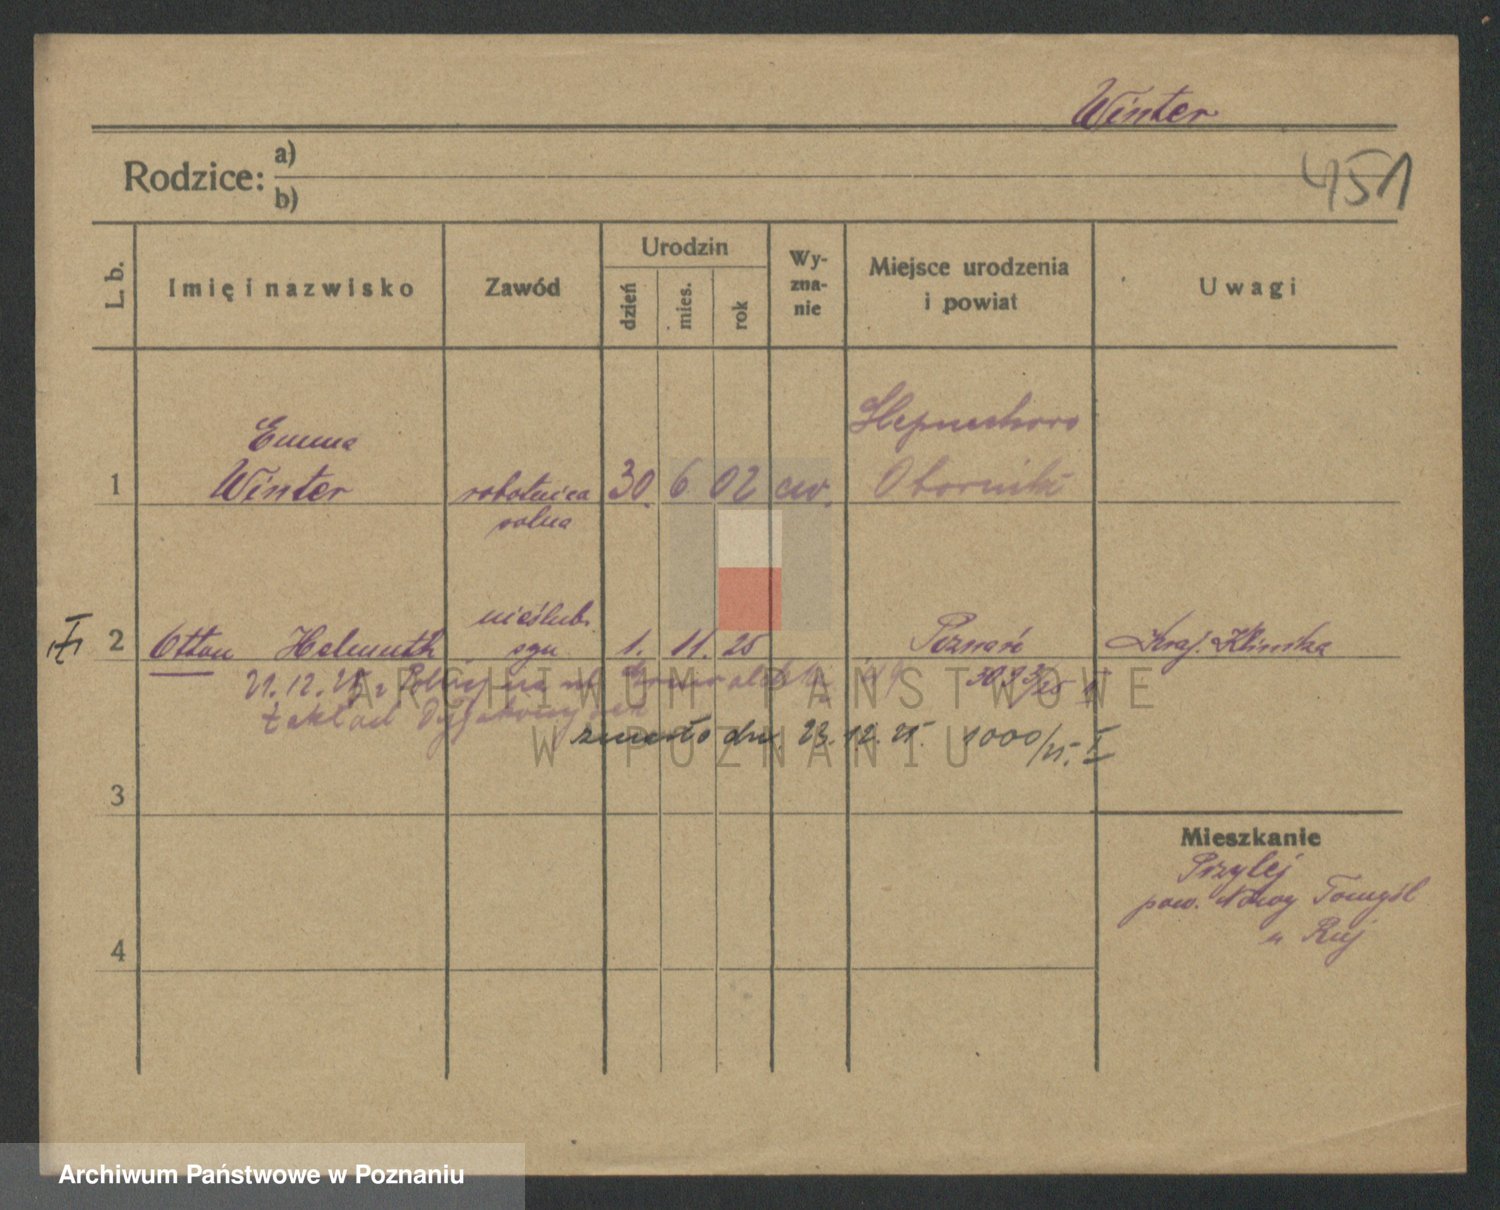 Winter
451
Rodzice: a)
b)
L. b.
Imię i nazwisko
Zawód
Urodzin
dzień
mies.
rok
Wy-
zna-
nie
Miejsce urodzenia
i powiat
Uwagi
1
Emma
Winter
robotnica
rolna
30. 6 02 ew.
Oborniki
2
Otton Helmuth
nieślub.
syn
1. 11. 25
Poznań
Kraj. Klinika
21.12.25
Zakład
zmarło dn 23.12.25. 1000/25. I
3
Mieszkanie
pow. Nowy Tomyśl
4
ARCHIWUM PAŃSTWOWE
W POZNANIU
Archiwum Państwowe w Poznaniu